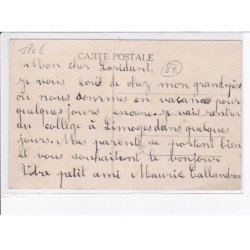 2806
CARTE POSTALE
87
Mon cher Lapidant,
je vous écrit de chez mon grand-père
où nous sommes en vacance pour
quelques jours encore. Je vais rentrer
du collège à Limoges dans quelques
jours. Mes parents se portent bien
et vous souhaitent le bonjour
Votre petit ami Maurice Lallandrau